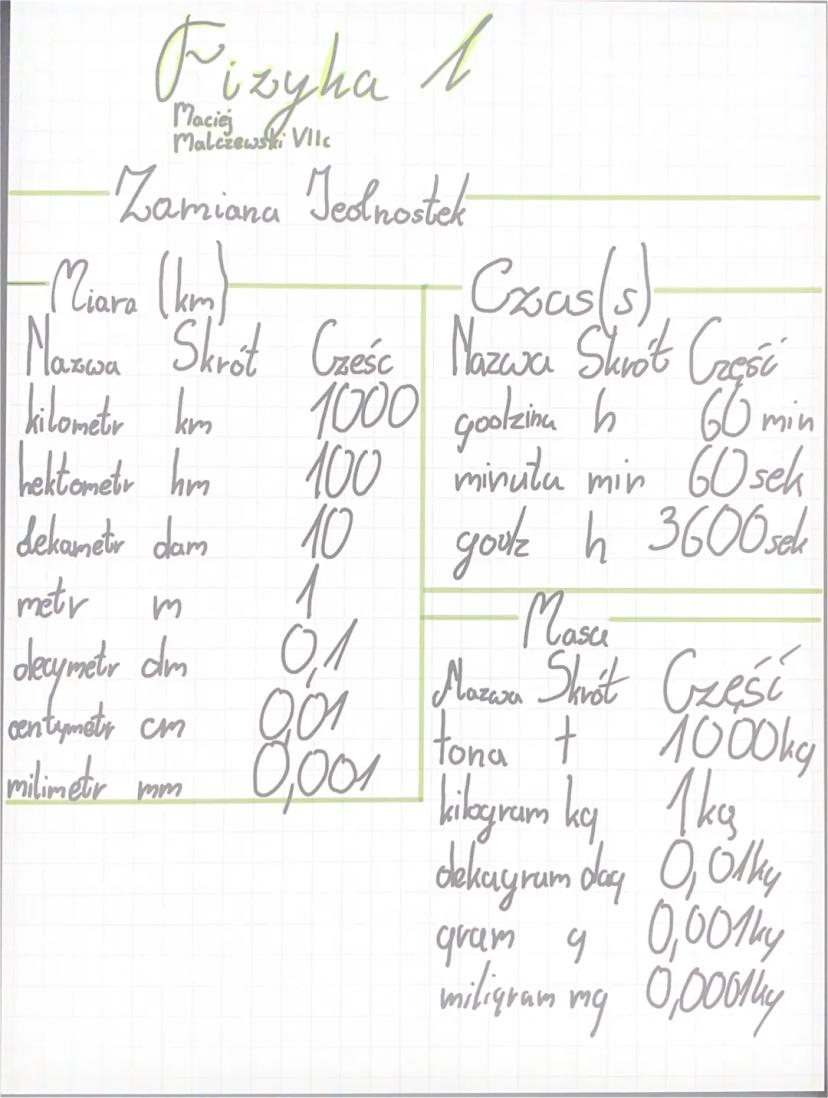 Fizyka 1
Maciej
Malczewski VIIc
Zamiana Jednostek
Miara (km)
Nazwa Skrót Cześć
kilometr km 1000
hektometr hm 100
dekametr dam 10
metr m 1
decymetr dm 0,1
centymetr cm 0,01
milimetr mm 0,001
Czas(s)
Nazwa Skrót Część
godzina h 60 min
minuta min 60 sek
godz h 3600 sek
Masa
Nazwa Skrót Część
tona t 1000kg
kilogram kg 1kg
dekagram dag 0,01kg
gram g 0,001kg
miligram mg 0,0001kg